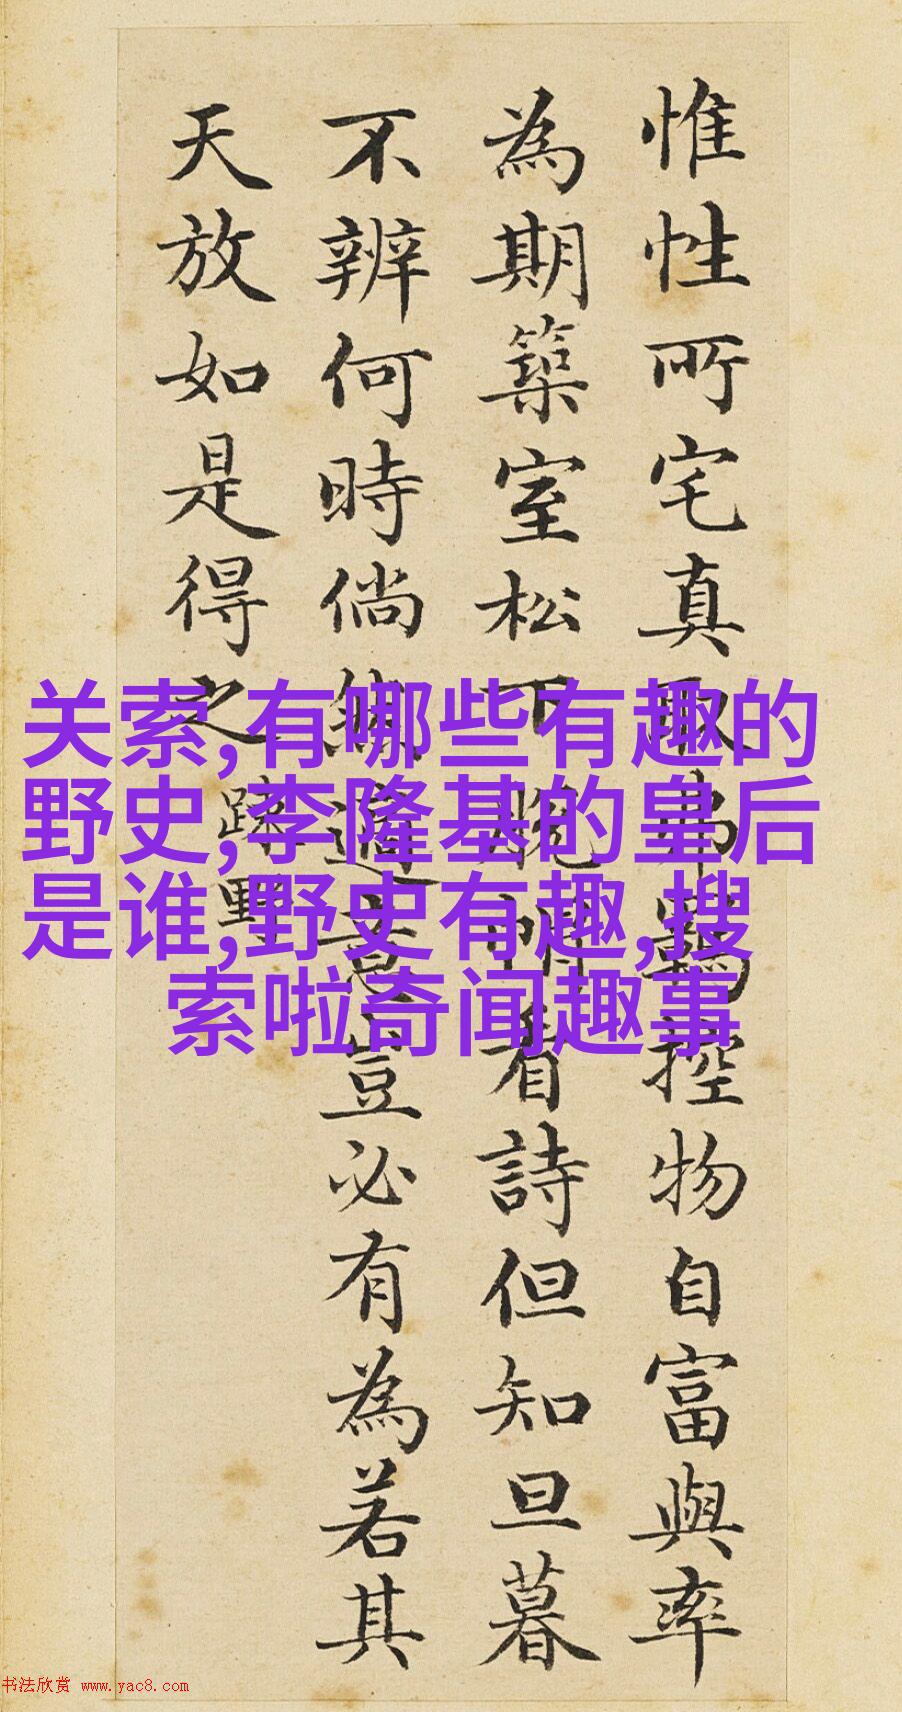 惟性所宅真取弗羈控物自富與率
為期築室松下脫帽看詩但知旦暮
不辨何時倘然適意豈必有為若其
天放如是得之
疎野
关索,有哪些有趣的
野史,李隆基的皇后
是谁,野史有趣,搜
索啦奇闻趣事
书法欣赏 www.yac8.com